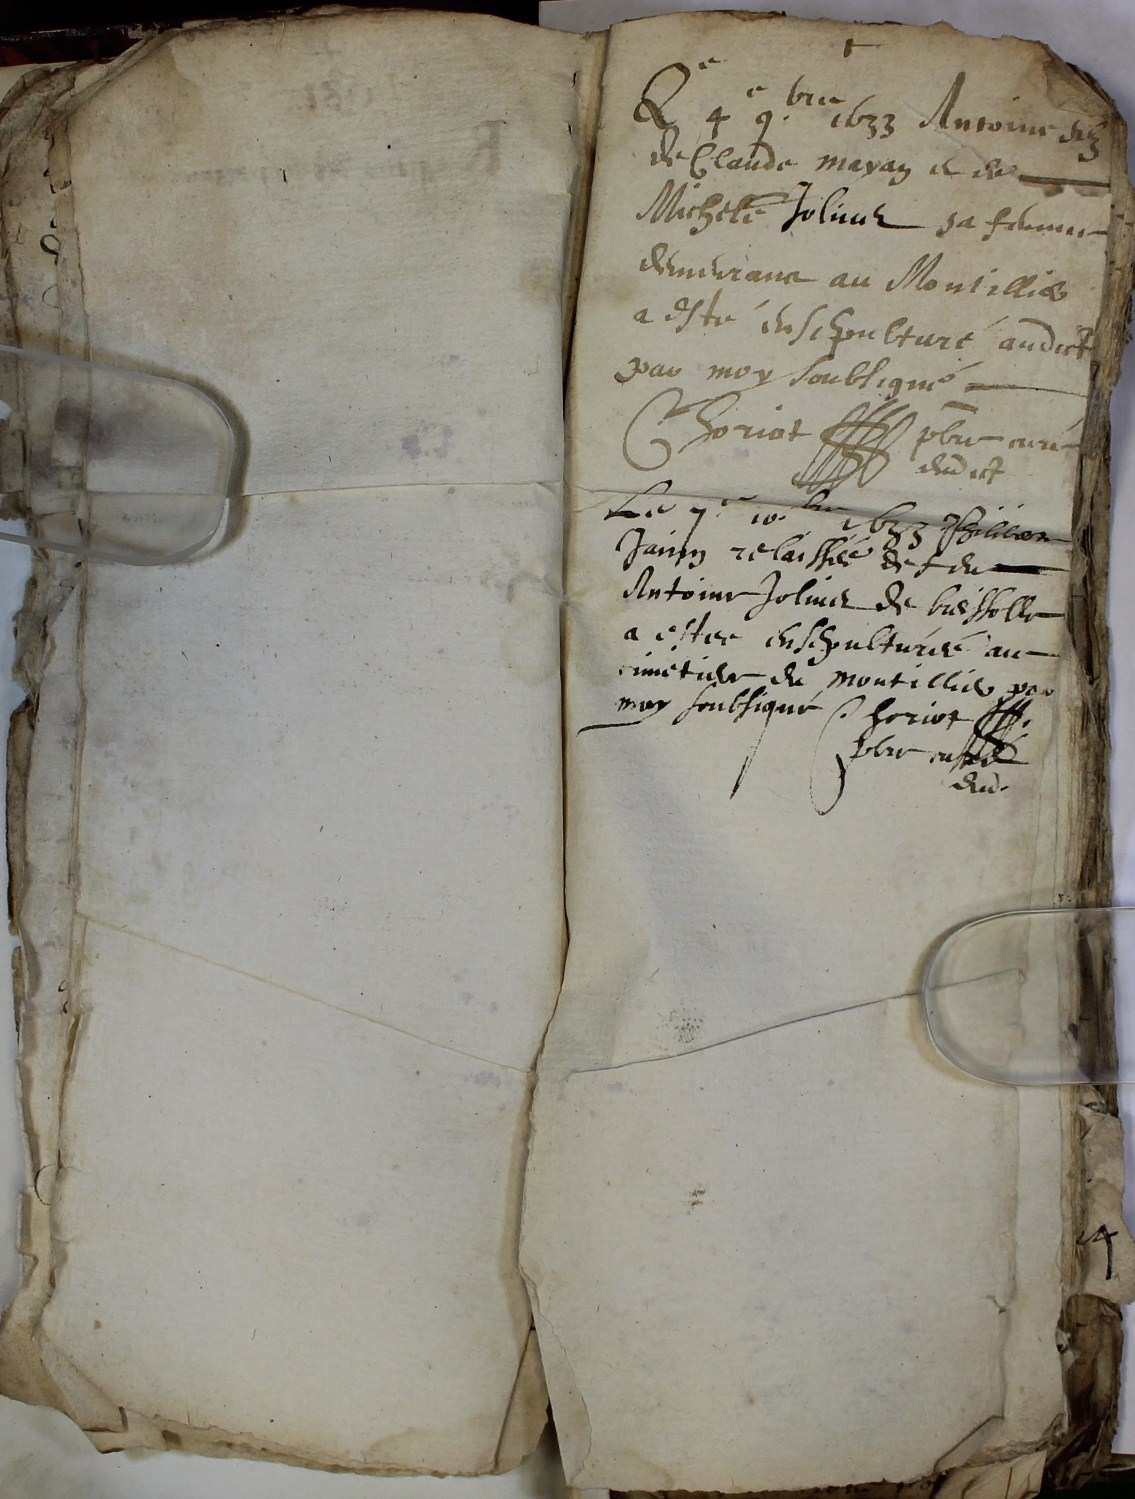 Le 4e 9.bre 1633 Antoine filz
de Claude mayan et de
Michele Jolivet sa femme
demeurant au Montillier
a esté ensepulturé audict
par moy soubsigné
Choriot pbre curé
dudict
Le 7.e 10.bre 1633
relaissée de feu
Antoine Jolivet de
a estee ensepulturée au
cimetier de montillier par
moy soubsigné Choriot
pbre curé
dud.